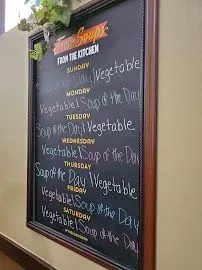 Fresh Soups
FROM THE KITCHEN
SUNDAY
Soup of the Day | Vegetable
MONDAY
Vegetable | Soup of the Day
TUESDAY
Soup of the Day | Vegetable
WEDNESDAY
Vegetable | Soup of the Day
THURSDAY
Soup of the Day | Vegetable
FRIDAY
Vegetable | Soup of the Day
SATURDAY
Vegetable | Soup of the Day